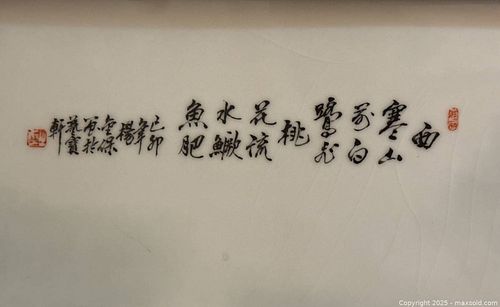 西
寒山
前白
鷺飛
桃
花流
水鱖
魚肥
己卯
年
楊
金保
寫於
藝寶
軒
Copyright 2025 - maxsold.com